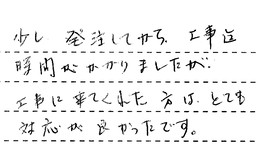 少し 発注してから、工事迄
時間がかかりましたが、
工事に来てくれた方は、とても
対応が良かったです。